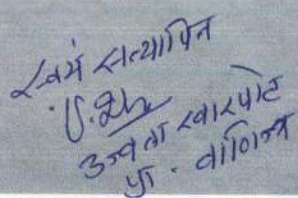 स्वयं सत्यापित
उज्वला खारपोटे
प्रा. वाणिज्य